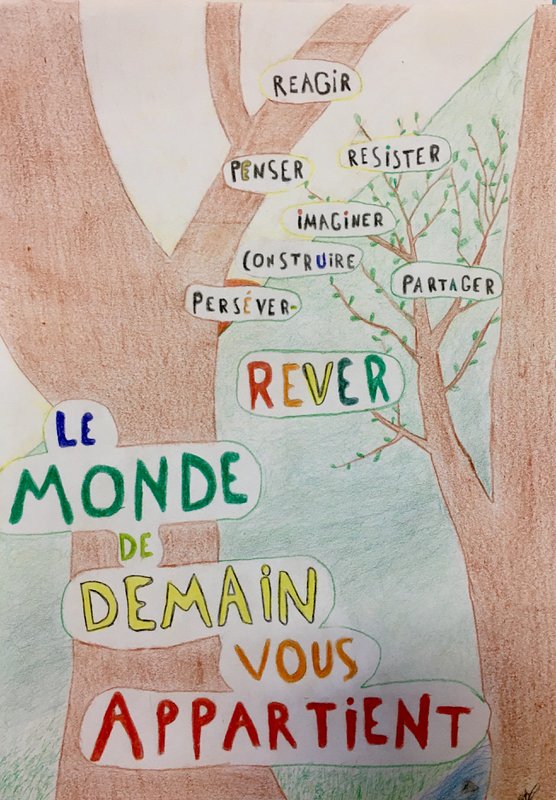 REAGiR
PENSER
RESiSTER
iMAGiNER
CONSTRUiRE
PARTAGER
PERSÉVER-
REVER
LE
MONDE
DE
DEMAiN
VOUS
APPARTiENT